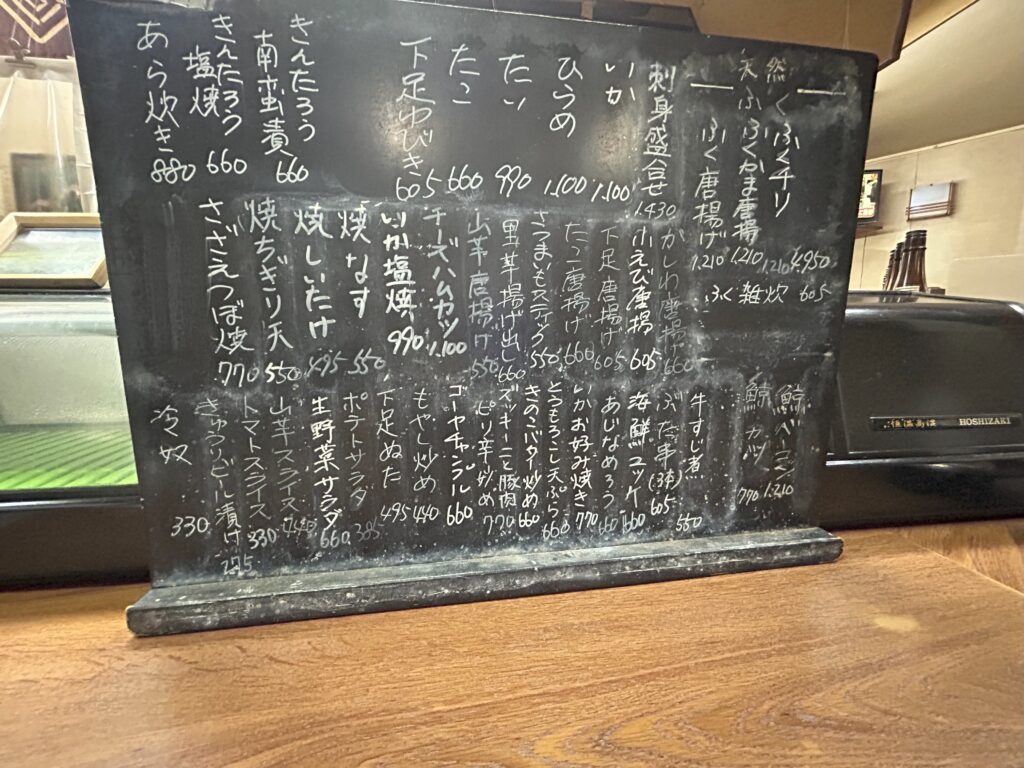 天然ふく
ふくチリ 4,950
ふくかま唐揚 1,210
ふく唐揚げ 1,210
ふく雑炊 605
刺身盛合せ 1,430
いか 1,100
ひらめ 1,100
たい 990
たこ 660
下足ゆびき 605
きんたろう南蛮漬 660
きんたろう塩焼 660
あら炊き 880
かしわ唐揚 660
小えび唐揚 605
下足唐揚げ 605
たこ唐揚げ 660
さつまいもスティック 550
里芋揚げ出し 660
山芋唐揚げ 550
チーズハムカツ 1,100
いか塩焼 990
焼なす 550
焼しいたけ 495
焼ちぎり天 550
さざえつぼ焼 770
鯨ベーコン 1,210
鯨カツ 770
牛すじ煮 550
ぶた串(3本) 605
海鮮ユッケ 660
あじなめろう 660
いかお好み焼き 770
とうもろこし天ぷら 660
きのこバター炒め 660
ズッキーニと豚肉ピリ辛炒め 770
ゴーヤチャンプル 660
もやし炒め 440
下足ぬた 495
ポテトサラダ 385
生野菜サラダ 660
山芋スライス 440
トマトスライス 330
きゅうりビール漬け 275
冷奴 330
恒温高湿 HOSHIZAKI